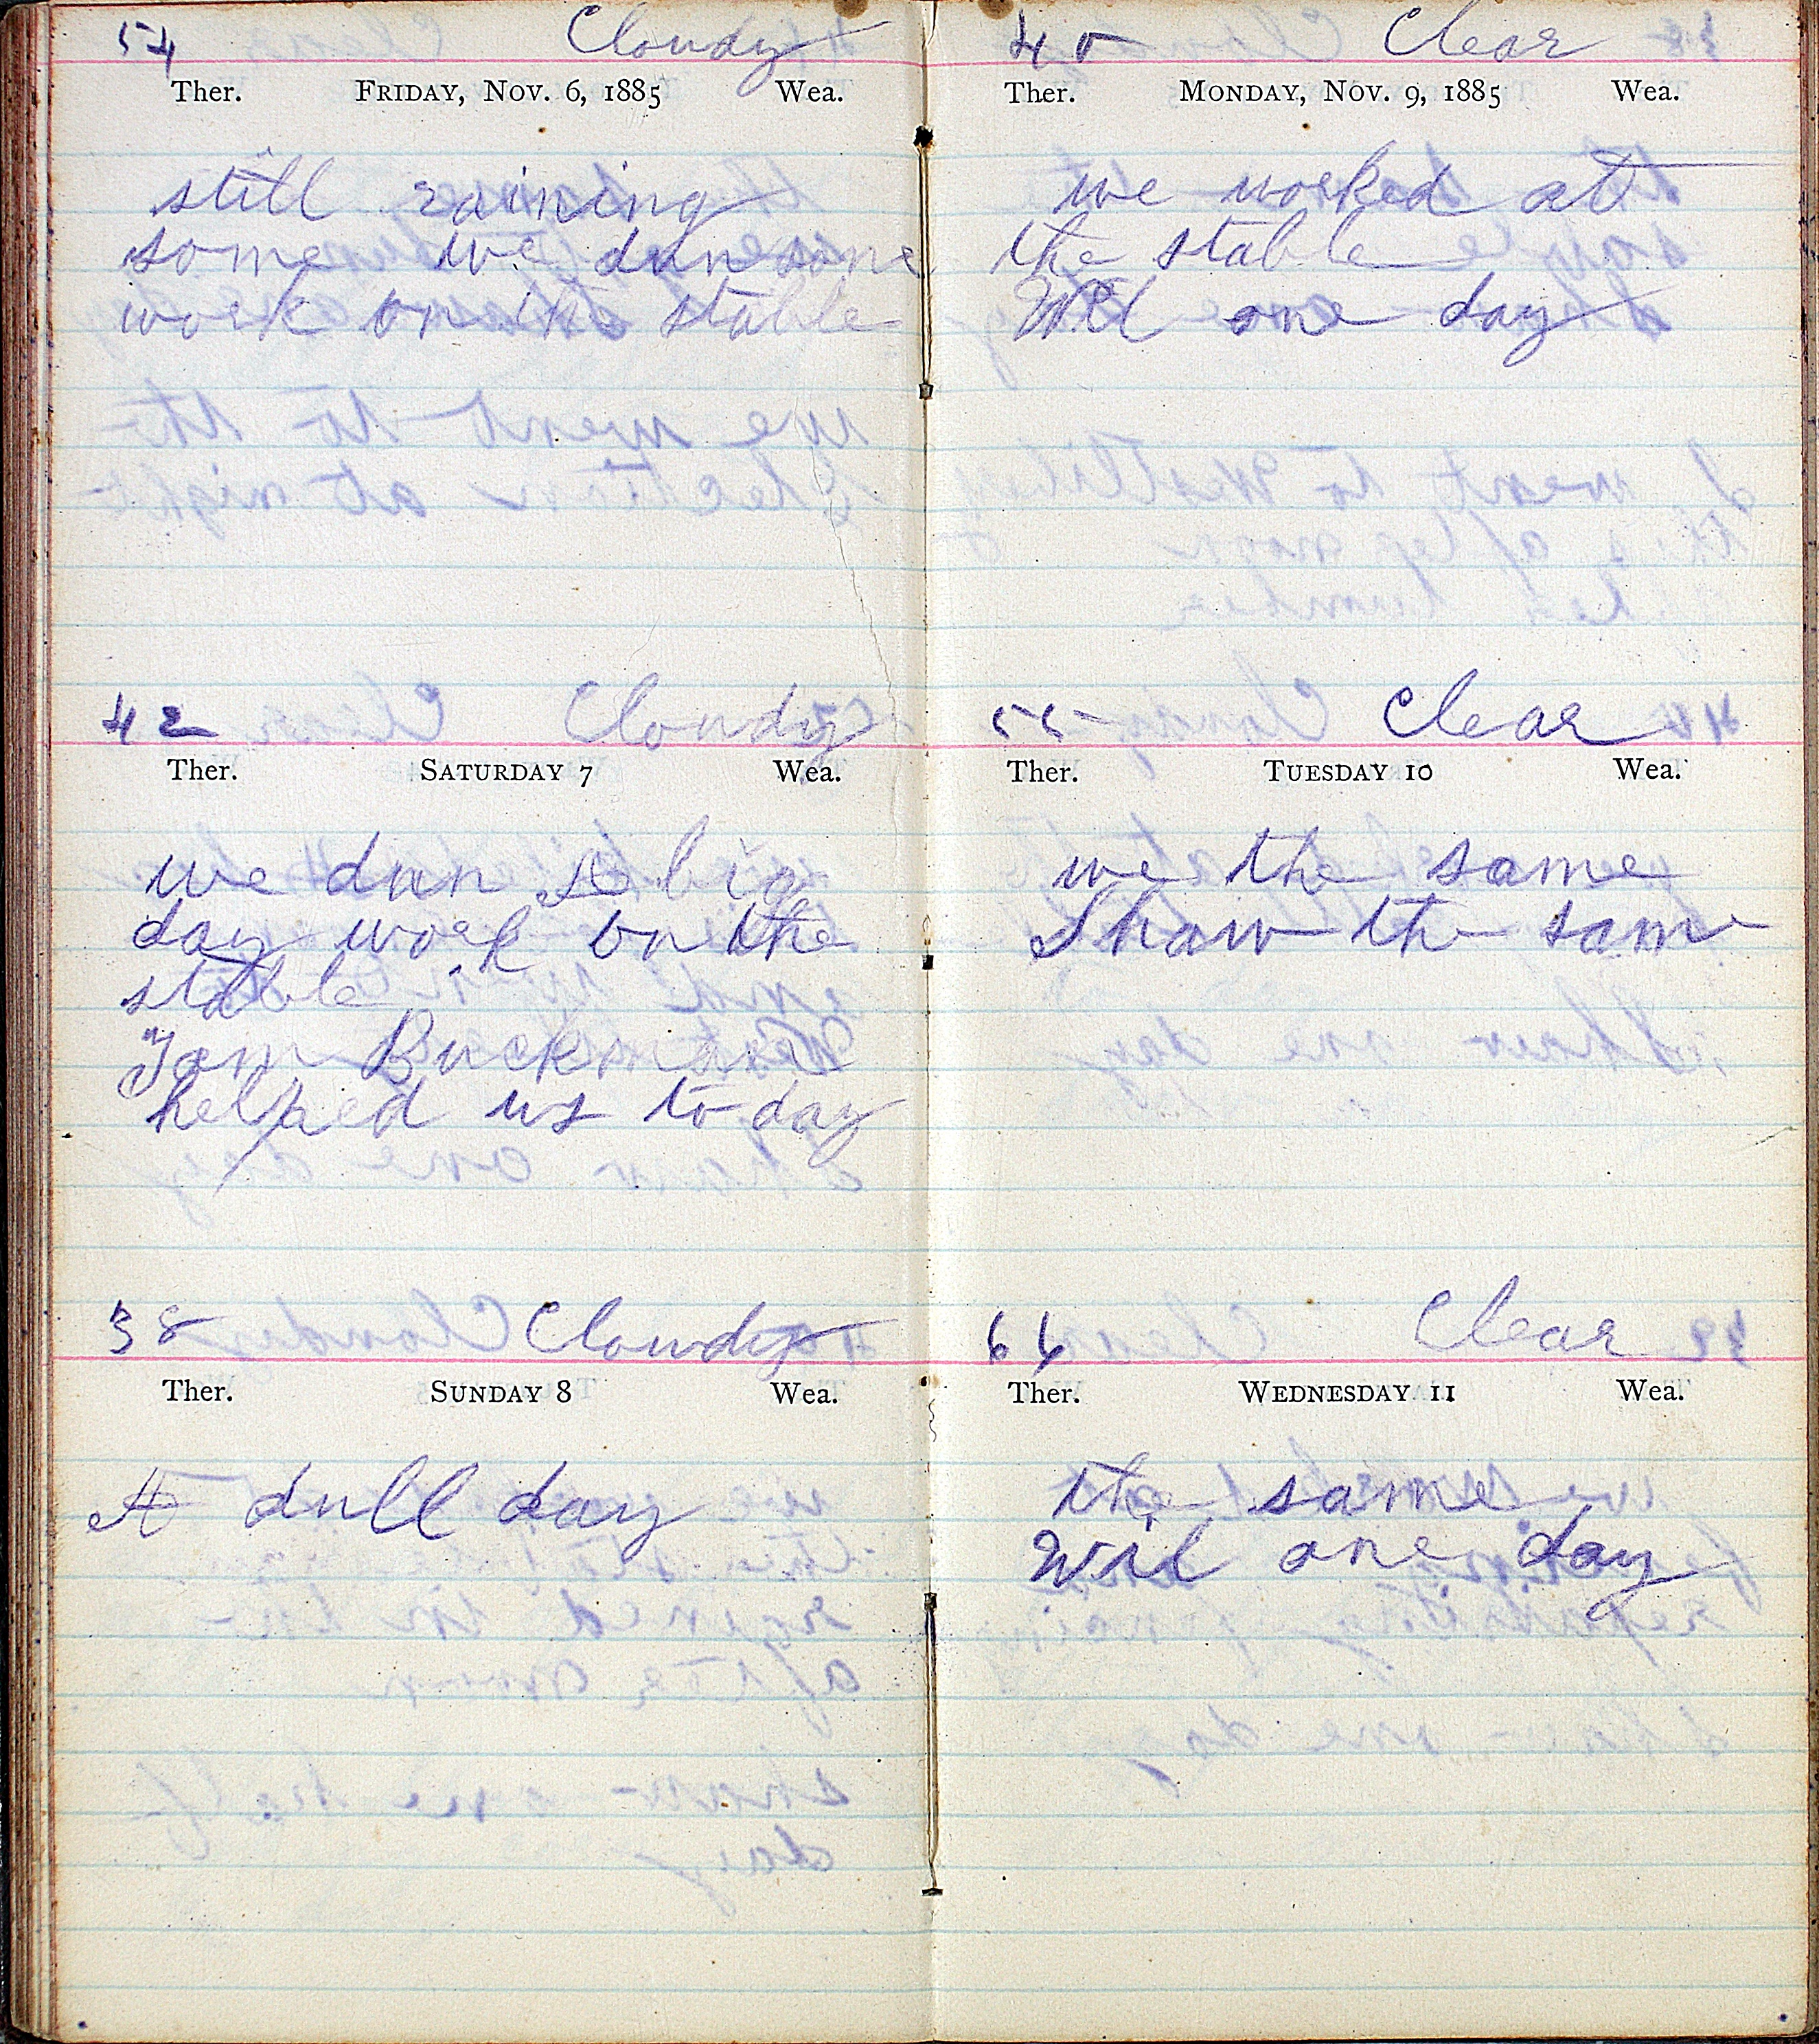 54 Cloudy
Ther. FRIDAY, NOV. 6, 1885 Wea.
still raining
some we dun some
work on the stable
42 Cloudy
Ther. SATURDAY 7 Wea.
we dun A big
day work on the
stable
Tom Buckman
helped us to day
38 Cloudy
Ther. SUNDAY 8 Wea.
A dull day
40 Clear
Ther. MONDAY, NOV. 9, 1885 Wea.
we worked at
the stable
Wil one day
55 Clear
Ther. TUESDAY 10 Wea.
we the same
Shaw the same
66 Clear
Ther. WEDNESDAY 11 Wea.
the same
Wil one day